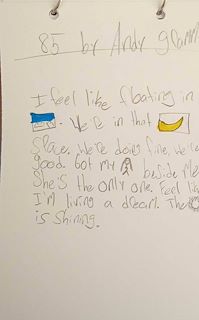 85 by Andy Gramm
I feel like floating in
We're in that
Space. We're doing fine, we're
good. Got my beside me
She's the only one. Feel like
I'm living a dream. The
is shining.